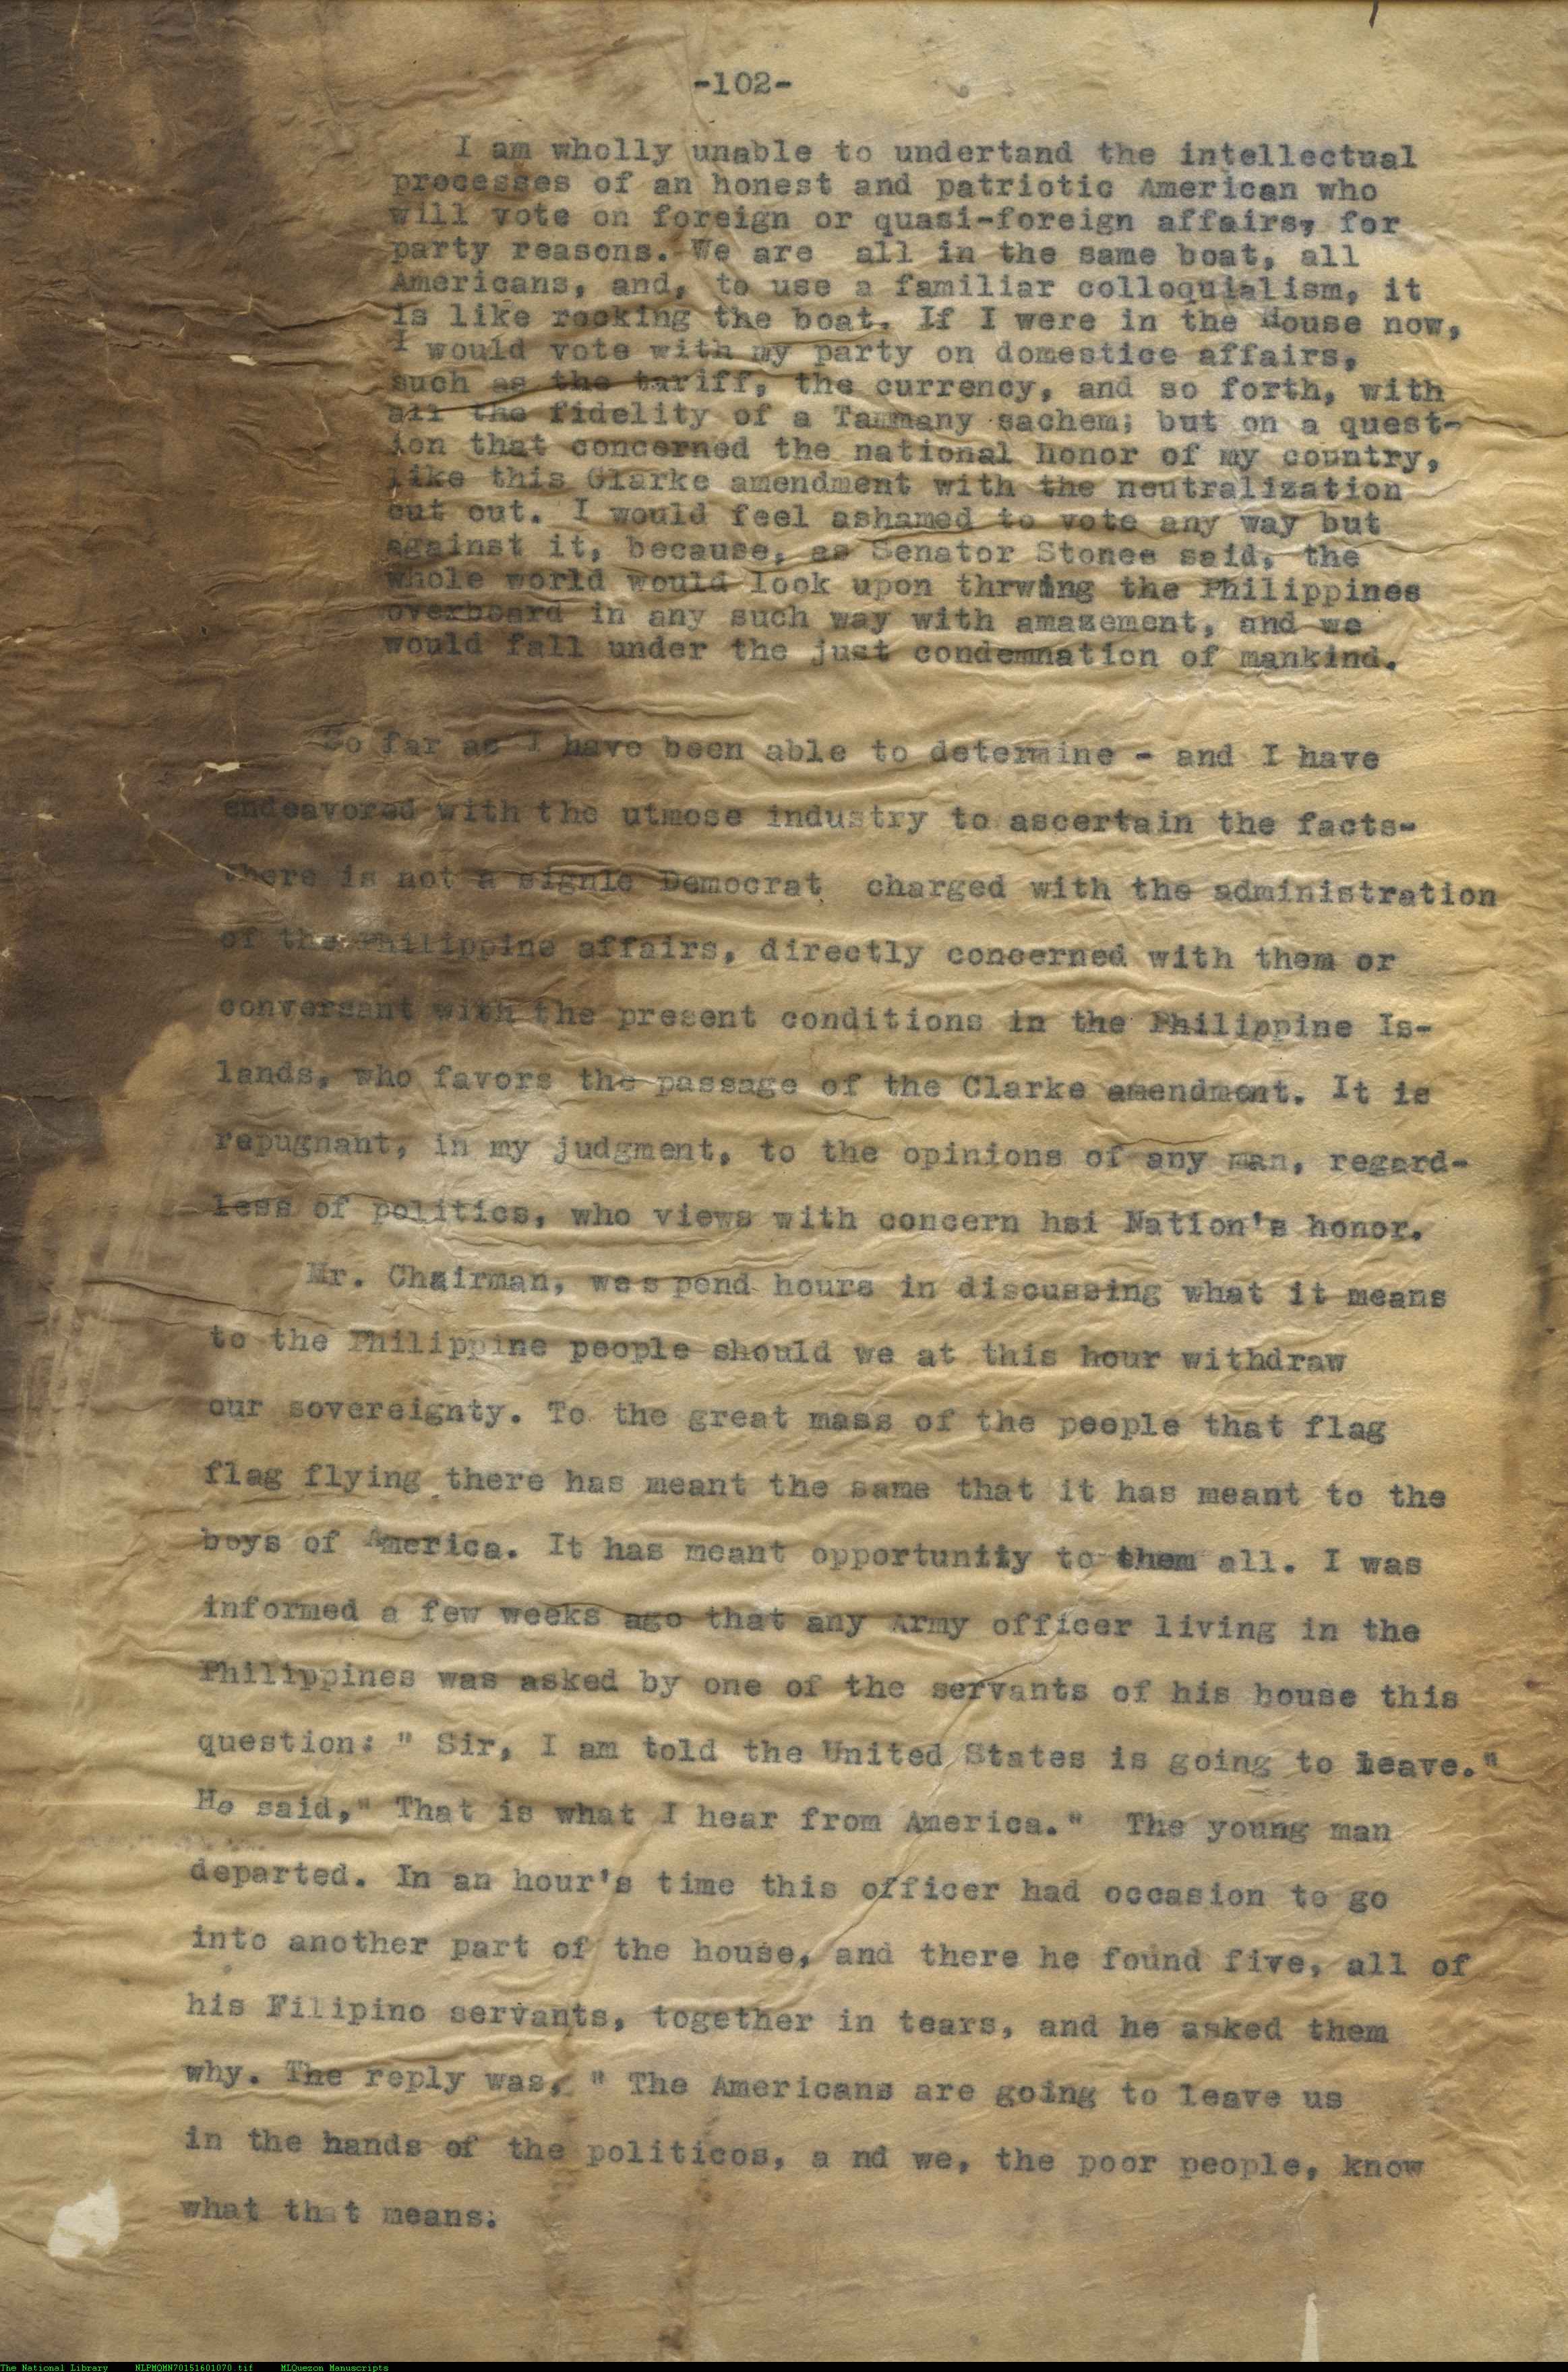 -102-
I am wholly unable to undertand the intellectual
processes of an honest and patriotic American who
will vote on foreign or quasi-foreign affairs, for
party reasons. We are all in the same boat, all
Americans, and, to use a familiar colloquialism, it
is like rocking the boat. If I were in the House now,
I would vote with my party on domestice affairs,
such as the tariff, the currency, and so forth, with
all the fidelity of a Tammany sachem; but on a quest-
ion that concerned the national honor of my country,
like this Clarke amendment with the neutralization
cut out. I would feel ashamed to vote any way but
against it, because, as Senator Stonee said, the
whole world would look upon thrwing the Philippines
overboard in any such way with amazement, and we
would fall under the just condemnation of mankind.
So far as I have been able to determine - and I have
endeavored with the utmose industry to ascertain the facts-
there is not a signle Democrat charged with the administration
of the Philippine affairs, directly concerned with them or
conversant with the present conditions in the Philippine Is-
lands, who favors the passage of the Clarke amendment. It is
repugnant, in my judgment, to the opinions of any man, regard-
less of politics, who views with concern hsi Nation's honor.
Mr. Chairman, wes pend hours in discussing what it means
to the Philippine people should we at this hour withdraw
our sovereignty. To the great mass of the people that flag
flag flying there has meant the same that it has meant to the
boys of America. It has meant opportunity to them all. I was
informed a few weeks ago that any Army officer living in the
Philippines was asked by one of the servants of his house this
question: " Sir, I am told the United States is going to leave."
He said," That is what I hear from America." The young man
departed. In an hour's time this officer had occasion to go
into another part of the house, and there he found five, all of
his Filipino servants, together in tears, and he asked them
why. The reply was, " The Americans are going to leave us
in the hands of the politicos, a nd we, the poor people, know
what that means.
The National Library NLPMQMN70151601070.tif MLQuezon Manuscripts